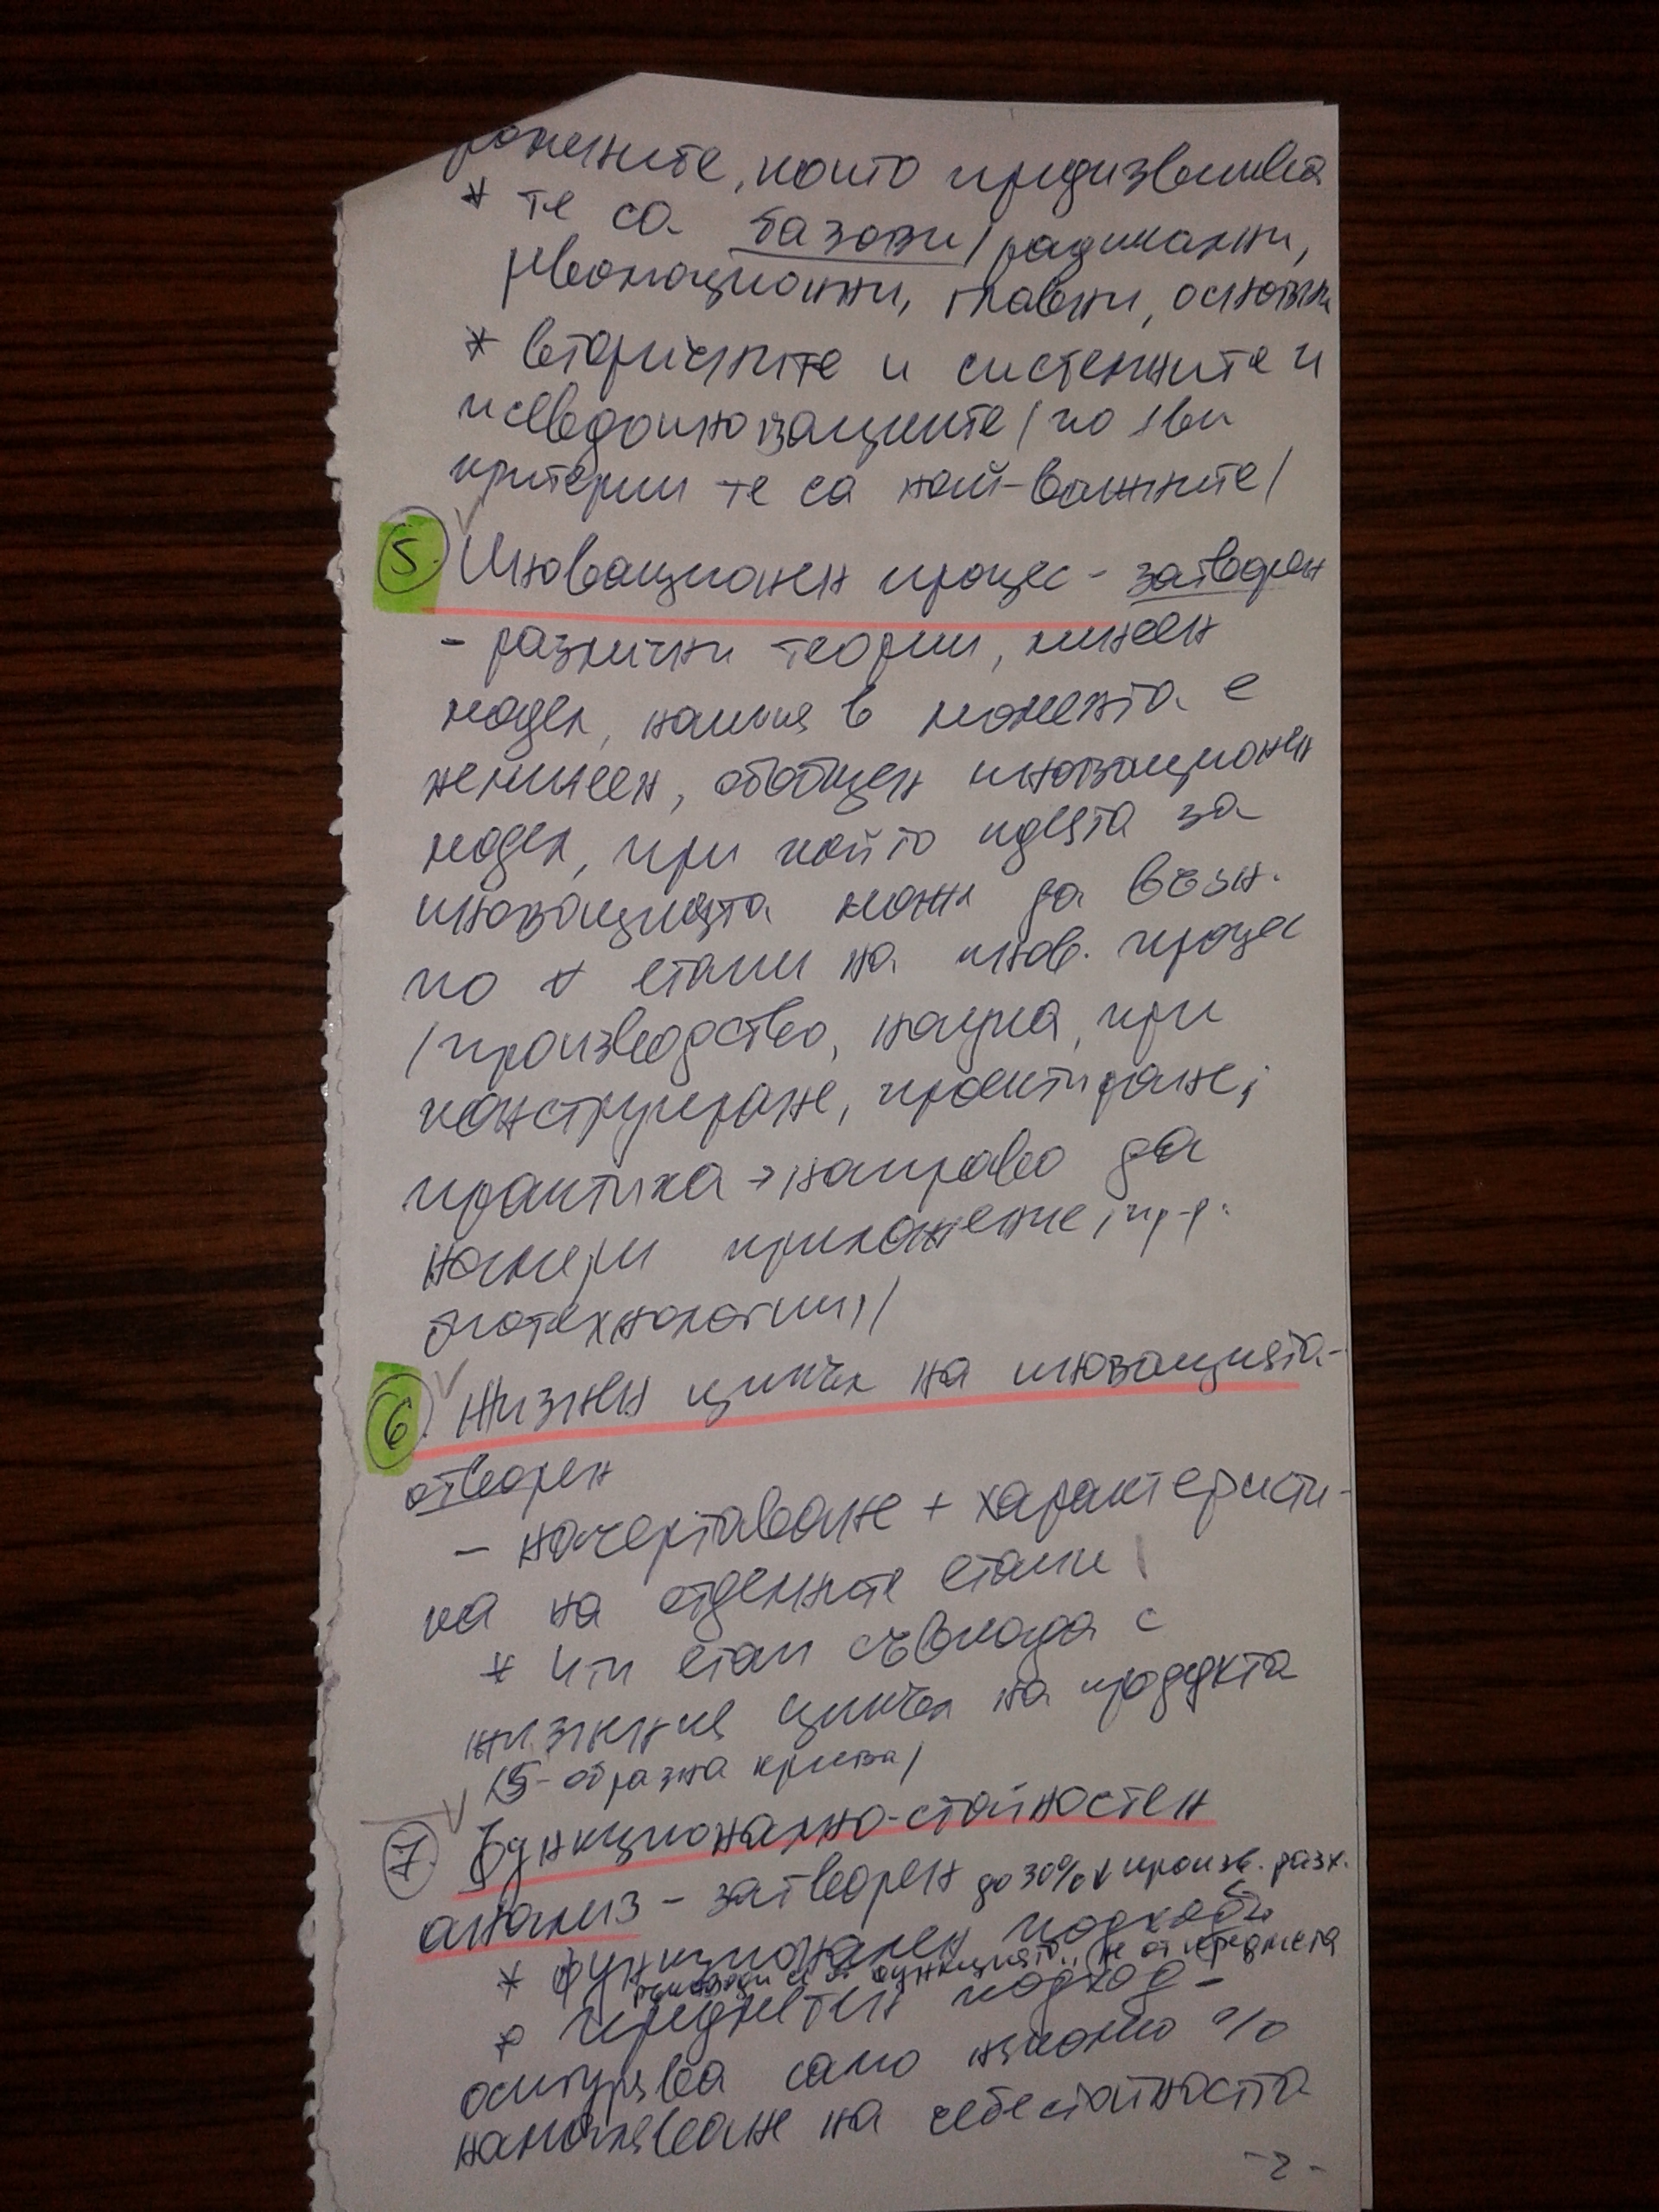 които предизвикват
* те са базови / радикални,
революционни, главни, основни
* вторичните и системните и
псевдоиновациите / по 1ви
критерии те са най-важните /
5. Иновационен процес - затворен
- различни теории, линеен
модел, нашия в момента е
нелинеен, обобщен иновационен
модел, при който идеята за
иновацията може да възн.
по етапи на инов. процес
/ производство, наука, при
конструиране, проектиране;
практика → направо да
намери приложение, пр-р.
биотехнологии, /
6. Жизнен цикъл на иновацията -
отворен
- начертаване + характеристи-
ка на отделните етапи /
* 4ти етап съвпада с
жизнения цикъл на продукта
/ S-образна крива /
7. Функционално-стойностен
анализ - затворен до 30% произв. разх.
* функционален подход
от функцията, не от предмета
* предметен подход -
осигурява само малко %
намаляване на себестойността
- 2 -